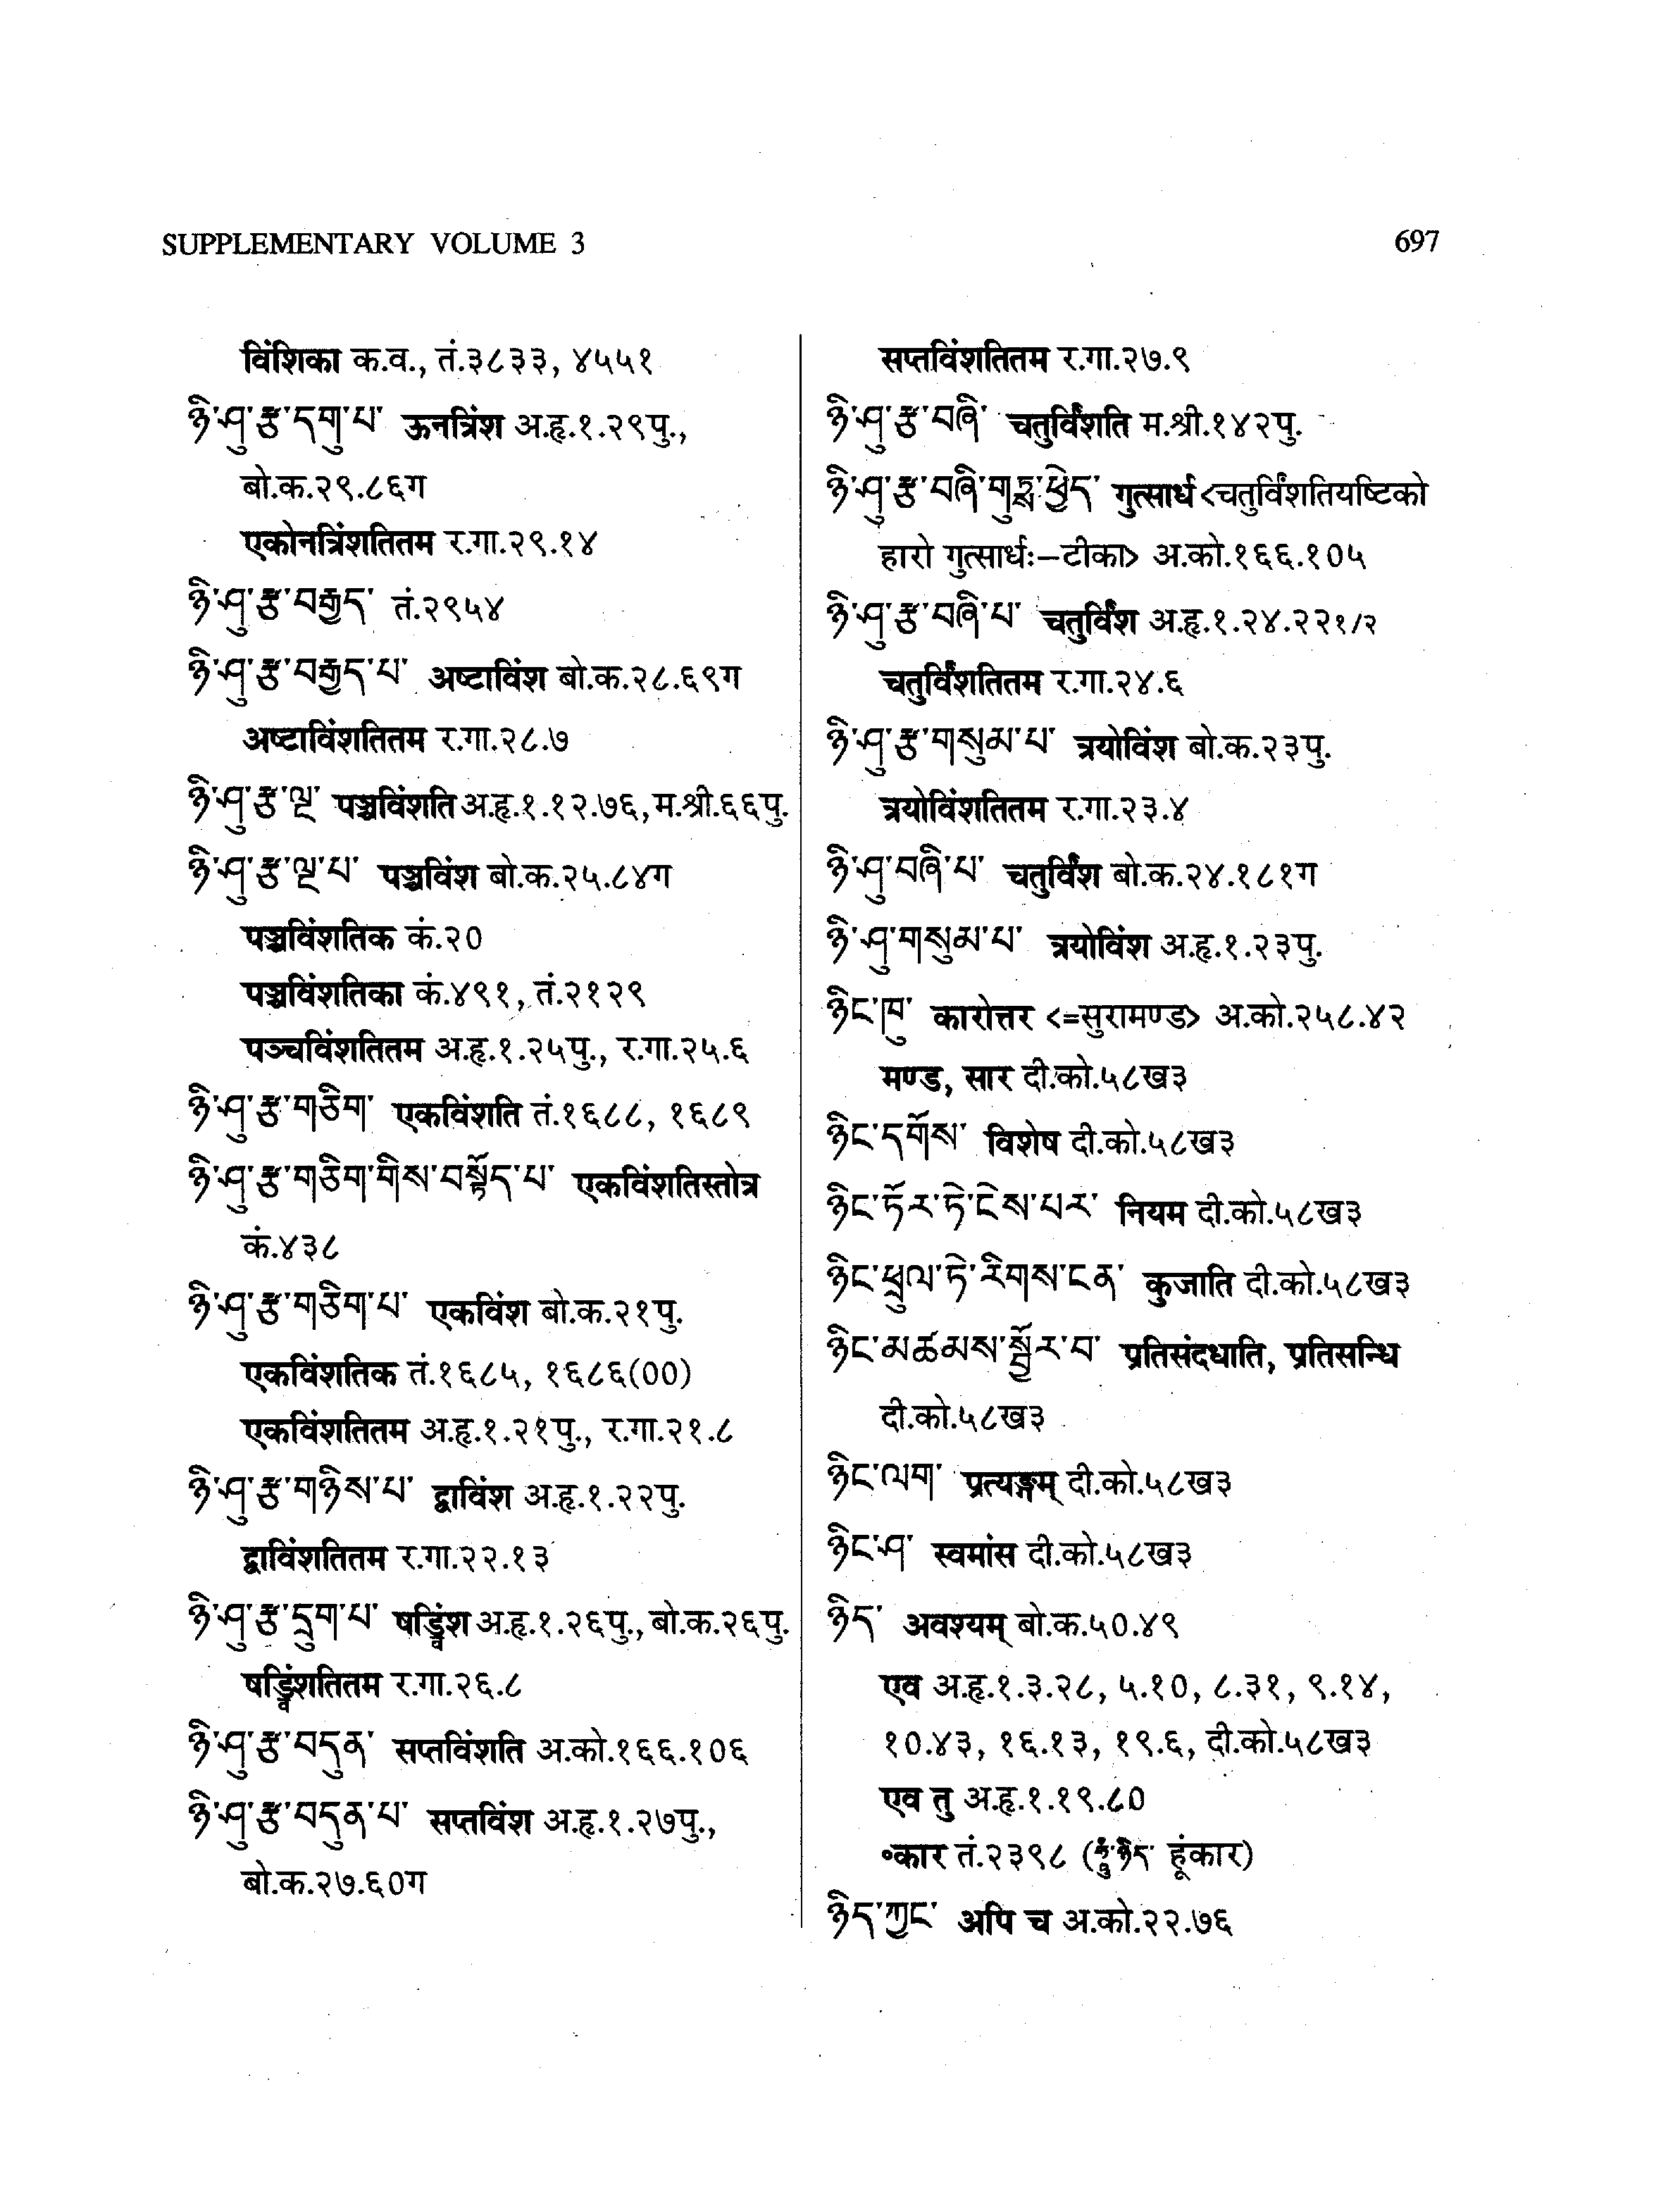 SUPPLEMENTARY VOLUME 3
697
विंशिका क.व., तं.३८३३, ४५५१
ཉི་ཤུ་རྩ་དགུ་པ་ ऊनत्रिंश अ.हृ.१.२९पु.,
बो.क.२९.८६ग
एकोनत्रिंशतितम र.गा.२९.१४
ཉི་ཤུ་རྩ་བརྒྱད་ तं.२९५४
ཉི་ཤུ་རྩ་བརྒྱད་པ་ अष्टाविंश बो.क.२८.६९ग
अष्टाविंशतितम र.गा.२८.७
ཉི་ཤུ་རྩ་ལྔ་ पञ्चविंशति अ.हृ.१.१२.७६, म.श्री.६६पु.
ཉི་ཤུ་རྩ་ལྔ་པ་ पञ्चविंश बो.क.२५.८४ग
पञ्चविंशतिक कं.२0
पञ्चविंशतिका कं.४९१, तं.२१२९
पञ्चविंशतितम अ.हृ.१.२५पु., र.गा.२५.६
ཉི་ཤུ་རྩ་གཅིག་ एकविंशति तं.१६८८, १६८९
ཉི་ཤུ་རྩ་གཅིག་གིས་བསྟོད་པ་ एकविंशतिस्तोत्र
कं.४३८
ཉི་ཤུ་རྩ་གཅིག་པ་ एकविंश बो.क.२१पु.
एकविंशतिक तं.१६८५, १६८६(00)
एकविंशतितम अ.हृ.१.२१पु., र.गा.२१.८
ཉི་ཤུ་རྩ་གཉིས་པ་ द्वाविंश अ.हृ.१.२२पु.
द्वाविंशतितम र.गा.२२.१३
ཉི་ཤུ་རྩ་དྲུག་པ་ षड्विंश अ.हृ.१.२६पु., बो.क.२६पु.
षड्विंशतितम र.गा.२६.८
ཉི་ཤུ་རྩ་བདུན་ सप्तविंशति अ.को.१६६.१०६
ཉི་ཤུ་རྩ་བདུན་པ་ सप्तविंश अ.हृ.१.२७पु.,
बो.क.२७.६0ग
सप्तविंशतितम र.गा.२७.९
ཉི་ཤུ་རྩ་བཞི་ चतुर्विंशति म.श्री.१४२पु.
ཉི་ཤུ་རྩ་བཞི་གུཏྶ་ཕྱེད་ गुत्सार्ध <चतुर्विंशतियष्टिको
हारो गुत्सार्धः–टीका> अ.को.१६६.१०५
ཉི་ཤུ་རྩ་བཞི་པ་ चतुर्विंश अ.हृ.१.२४.२२१/२
चतुर्विंशतितम र.गा.२४.६
ཉི་ཤུ་རྩ་གསུམ་པ་ त्रयोविंश बो.क.२३पु.
त्रयोविंशतितम र.गा.२३.४
ཉི་ཤུ་བཞི་པ་ चतुर्विंश बो.क.२४.१८१ग
ཉི་ཤུ་གསུམ་པ་ त्रयोविंश अ.हृ.१.२३पु.
ཉིང་ཁུ་ कारोत्तर <=सुरामण्ड> अ.को.२५८.४२
मण्ड, सार दी.को.५८ख३
ཉིང་དགོས་ विशेष दी.को.५८ख३
ཉིང་ཏོར་ཏེ་ངེས་པར་ नियम दी.को.५८ख३
ཉིང་ཕྲུལ་ཏེ་རིགས་ངན་ कुजाति दी.को.५८ख३
ཉིང་མཚམས་སྦྱོར་བ་ प्रतिसंदधाति, प्रतिसन्धि
दी.को.५८ख३
ཉིང་ལག་ प्रत्यङ्गम् दी.को.५८ख३
ཉིང་ཤ་ स्वमांस दी.को.५८ख३
ཉིད་ अवश्यम् बो.क.५0.४९
एव अ.हृ.१.३.२८, ५.१0, ८.३१, ९.१४,
१0.४३, १६.१३, १९.६, दी.को.५८ख३
एव तु अ.हृ.१.१९.८0
॰कार तं.२३९८ (ཧཱུྃ་ཉིད་ हूंकार)
ཉིད་ཀྱང་ अपि च अ.को.२२.७६